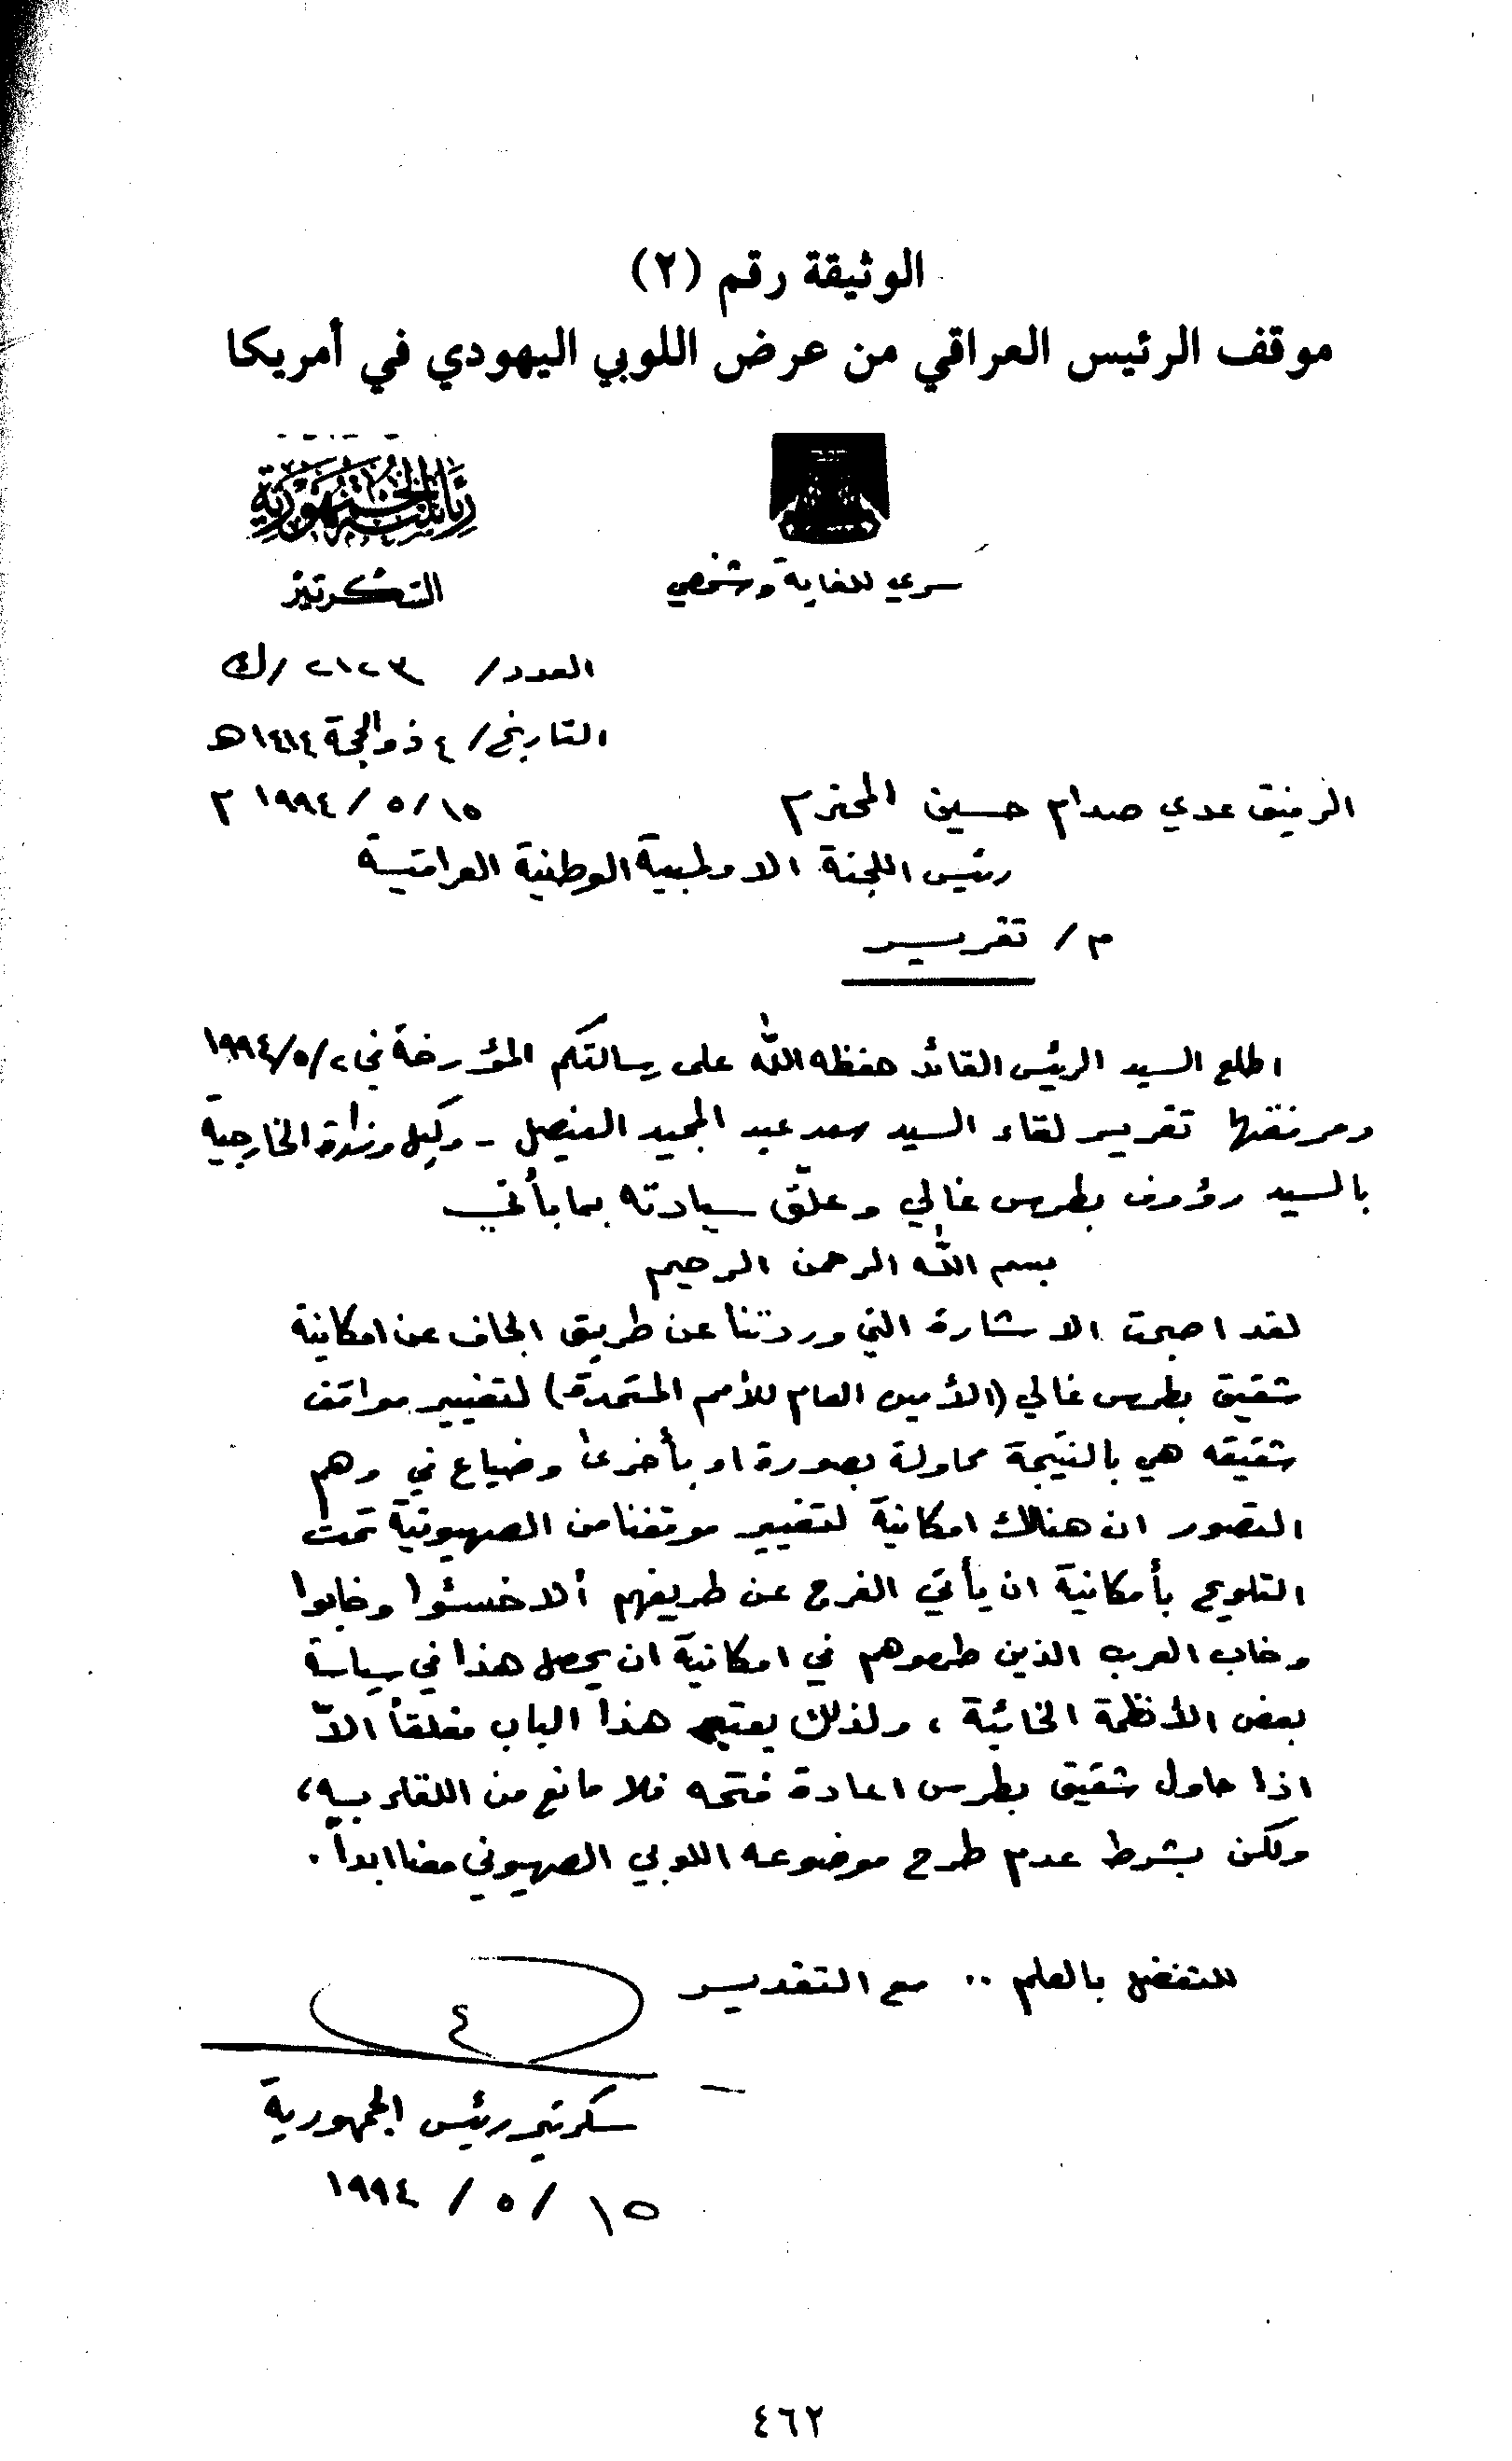 الوثيقة رقم (٢)
موقف الرئيس العراقي من عرض اللوبي اليهودي في أمريكا
رئاسة الجمهورية
السكرتير
سري للغاية وشخصي
العدد/ ٢١٢٣ /ك
التاريخ/ ٤ ذو الحجة ١٤١٤هـ
١٥/ ٥/ ١٩٩٤ م
الرفيق عدي صدام حسين المحترم
رئيس اللجنة الاولمبية الوطنية العراقية
م/ تقرير
اطلع السيد الرئيس القائد حفظه الله على رسالتكم المؤرخة في ١٩٩٤/٥/٢
ومرفقتها تقرير لقاء السيد سعد عبد المجيد الفيصل - وكيل وزارة الخارجية
بالسيد رؤوف بطرس غالي وعلّق سيادته بما يأتي
بسم الله الرحمن الرحيم
لقد اصبحت الاشارة التي وردتنا عن طريق الجاف عن امكانية
شقيق بطرس غالي (الأمين العام للأمم المتحدة) لتغيير مواقف
شقيقه هي بالنتيجة محاولة بصورة او بأخرى وضياع في وهم
التصور ان هنالك امكانية لتغيير موقفنا من الصهيونية تحت
التلويح بأمكانية ان يأتي الفرج عن طريقهم ألا خسئوا وخابوا
وخاب العرب الذين طمعوهم في امكانية ان يحصل هذا في سياسة
بعض الأنظمة الخائبة ، ولذلك يعتبر هذا الباب مغلقاً الاّ
اذا حاول شقيق بطرس اعادة فتحه فلا مانع من اللقاء به ،
ولكن بشرط عدم طرح موضوعه اللوبي الصهيوني معنا ابداً .
للتفضل بالعلم .. مع التقدير
سكرتير رئيس الجمهورية
١٥ / ٥ / ١٩٩٤
٤٦٢